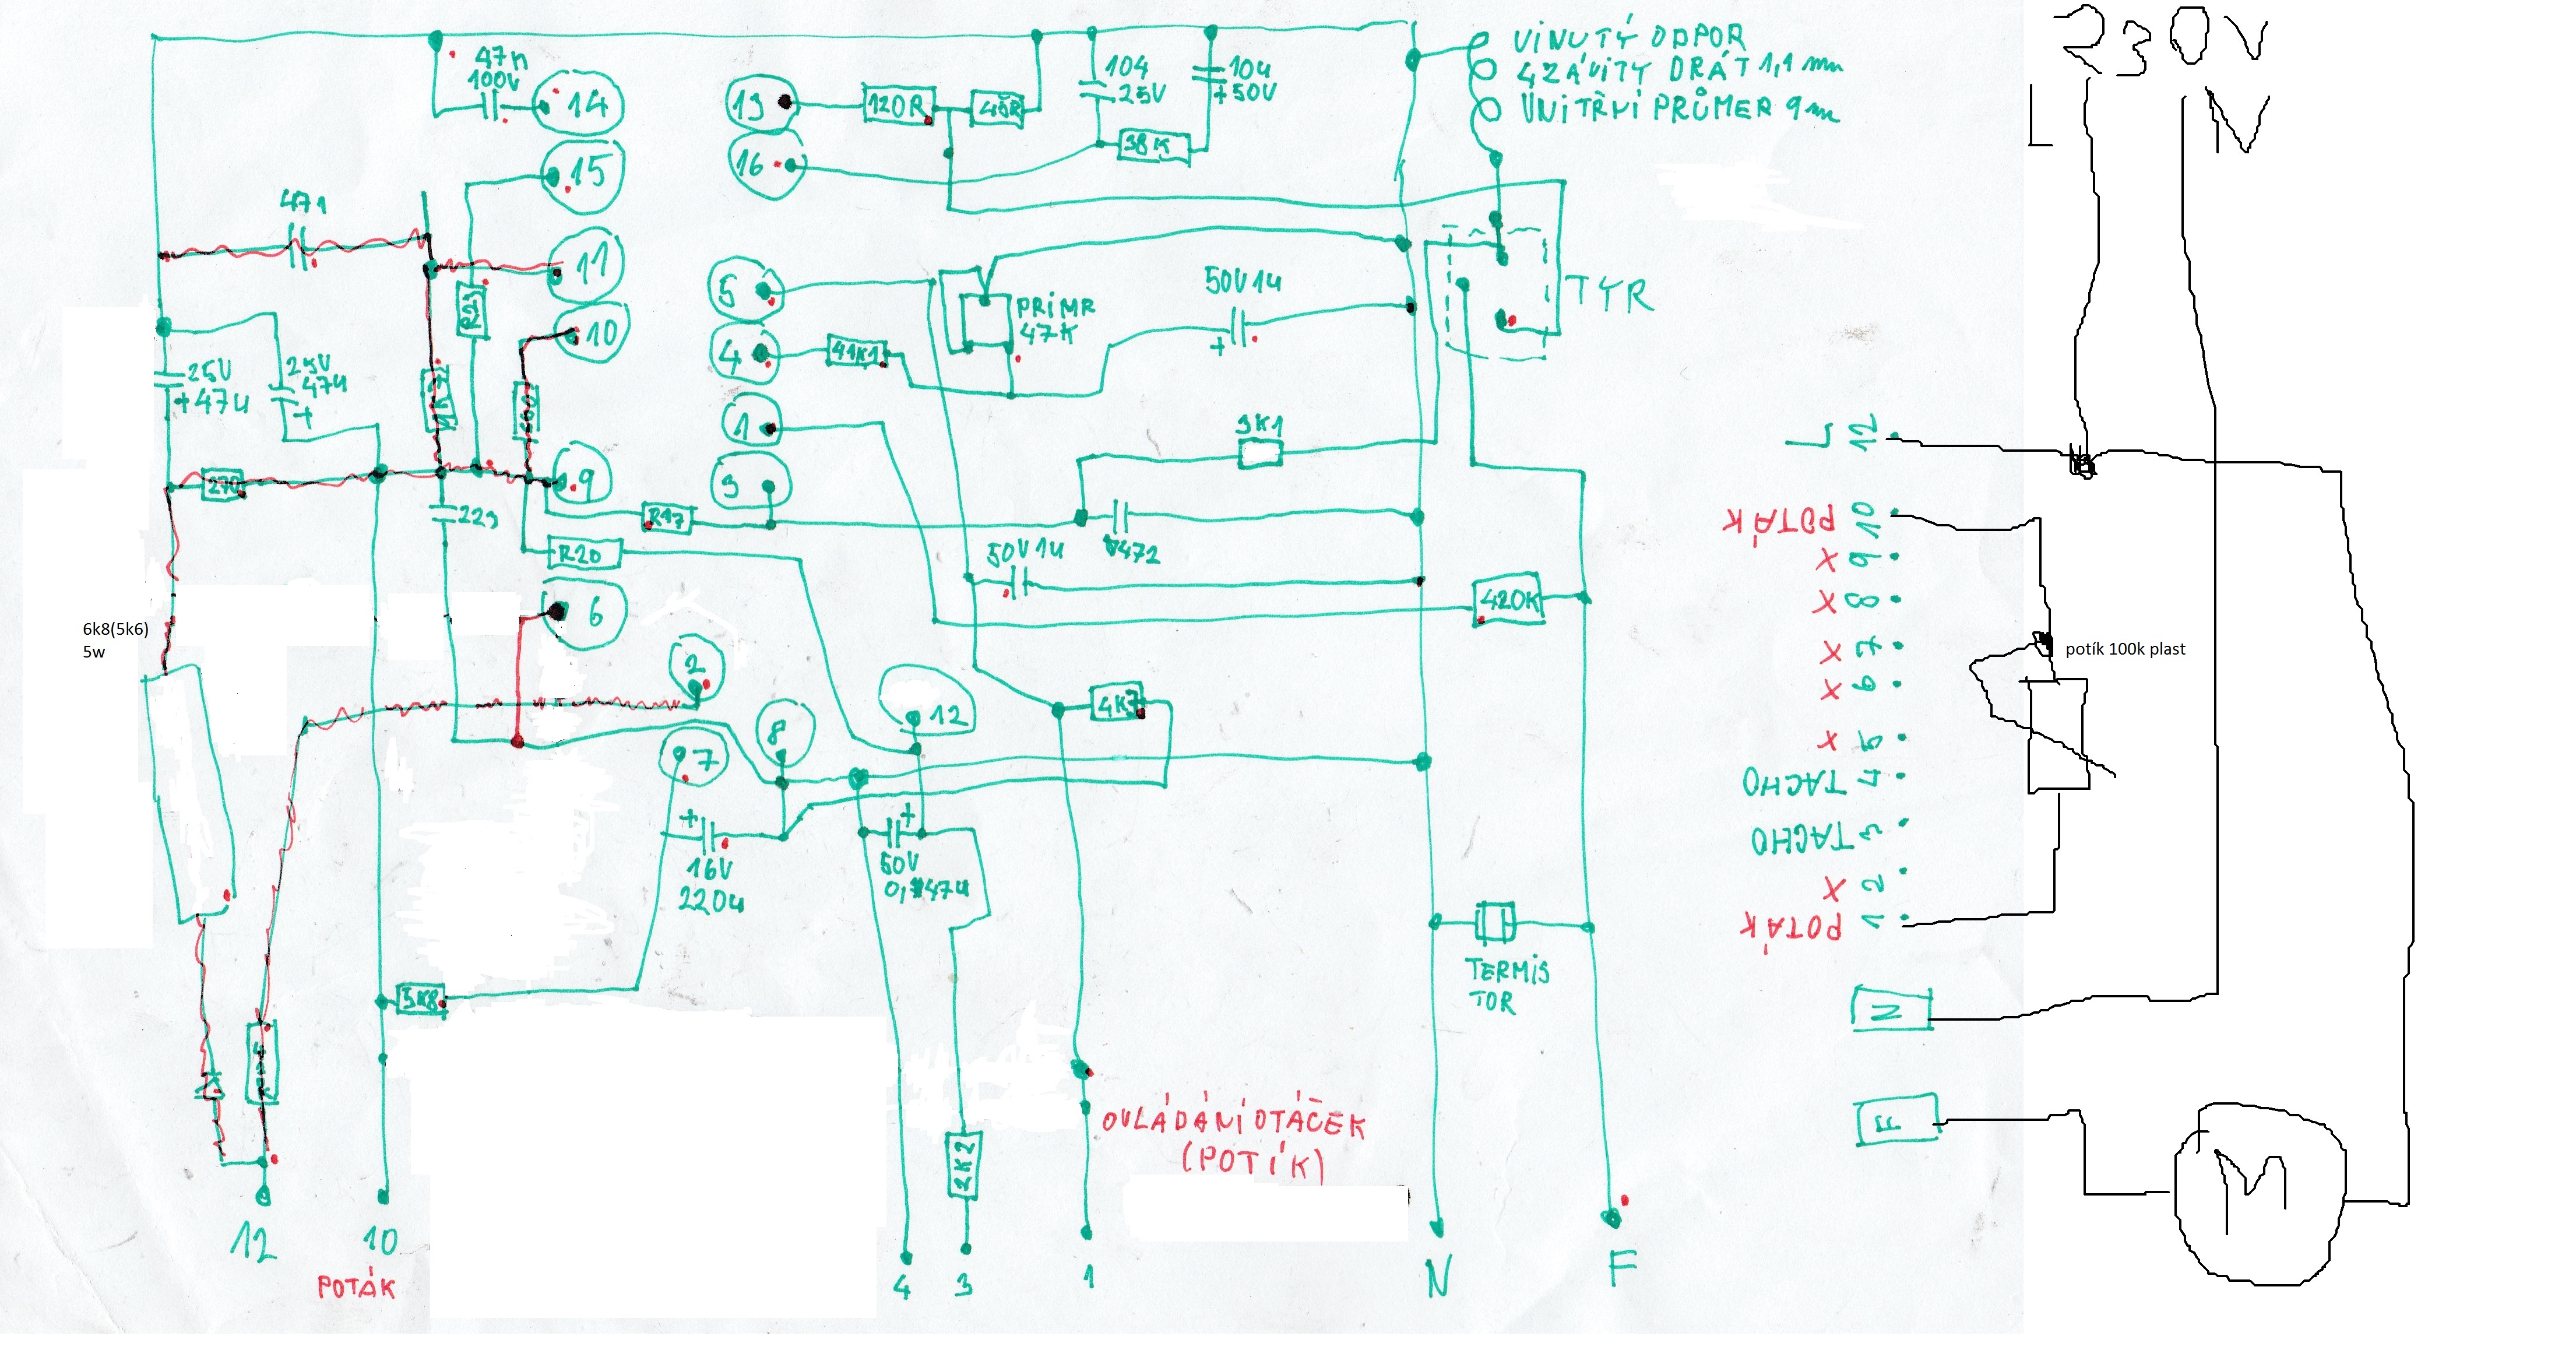 47n
100V
14
15
471
11
10
25V
+47u
25V
47u
+
270
9
223
R17
R20
6
6k8(5k6)
5w
2
7
8
12
+
16V
220u
+
50V
5K8
12
10
POTÁK
13
120R
16
104
25V
10u
+50V
38K
5
4
1
3
PRIMR
47K
50V1u
+
3K1
50V1u
472
420K
4K7
2K2
4
3
1
N
F
OVLÁDÁNÍ OTÁČEK
(POTÍK)
TERMIS
TOR
VINUTÝ ODPOR
4ZÁVITY DRÁT 1,1 mm
VNITŘNÍ PRŮMER 9m
TYR
230V
L
N
L 12
POTÁK 10
X 9
X 8
X 7
X 6
X 5
TACHO 4
TACHO 3
X 2
POTÁK 1
N
F
potík 100k plast
M